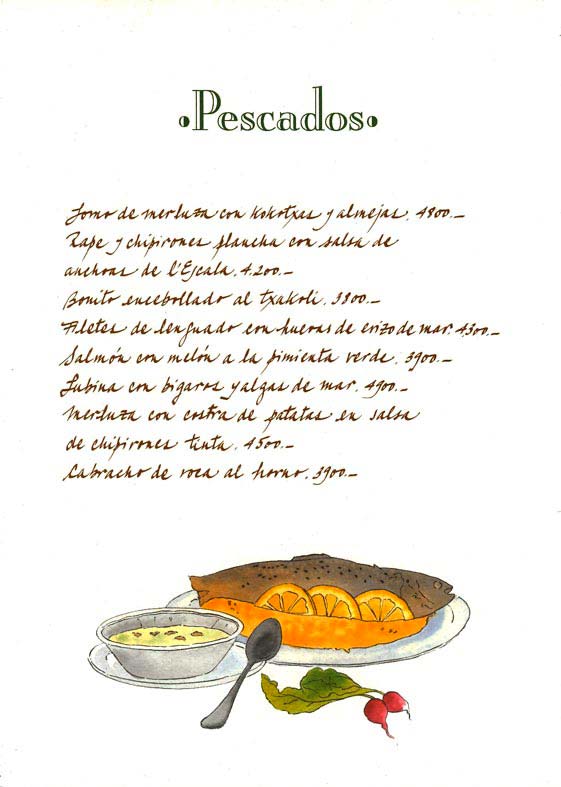 ·Pescados·
Lomo de merluza con kokotxas y almejas. 4800.—
Rape y chipirones plancha con salsa de
anchoas de l'Escala. 4.200.—
Bonito encebollado al txakoli. 3800.—
Filetes de lenguado con huevas de erizo de mar. 4300.—
Salmón con melón a la pimienta verde. 3900.—
Lubina con bígaros y algas de mar. 4900.—
Merluza con costra de patatas en salsa
de chipirones tinta. 4500.—
Cabracho de roca al horno. 3900.—